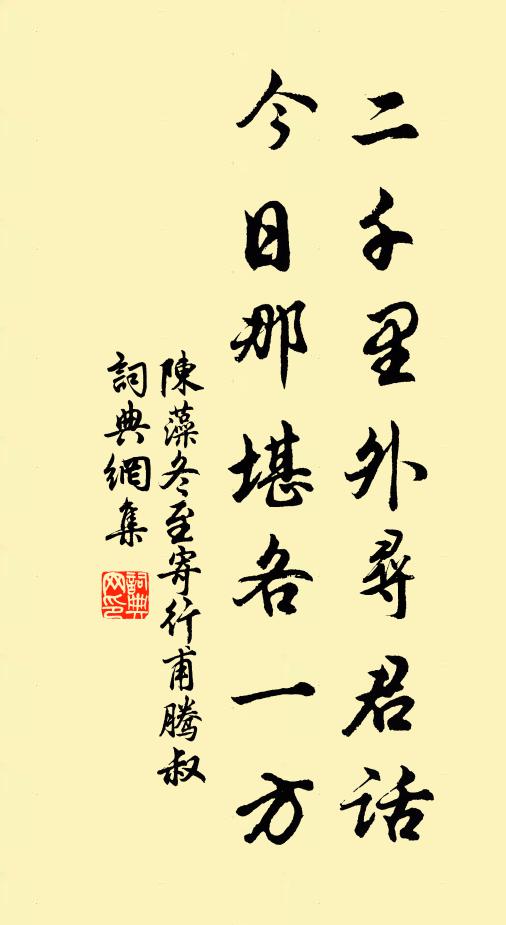 二千里外尋君話
今日那堪各一方
陳藻冬至寄行甫騰叔
詞典網集
詞典网印